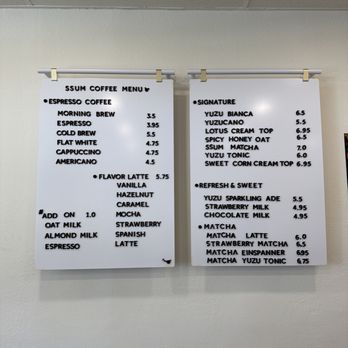 SSUM COFFEE MENU
ESPRESSO COFFEE
MORNING BREW 3.5
ESPRESSO 3.95
COLD BREW 5.5
FLAT WHITE 4.75
CAPPUCCINO 4.75
AMERICANO 4.5
FLAVOR LATTE 5.75
VANILLA
HAZELNUT
CARAMEL
MOCHA
STRAWBERRY
SPANISH
LATTE
ADD ON 1.0
OAT MILK
ALMOND MILK
ESPRESSO
SIGNATURE
YUZU BIANCA 6.5
YUZUCANO 5.5
LOTUS CREAM TOP 6.95
SPICY HONEY OAT 6.5
SSUM MATCHA 7.0
YUZU TONIC 6.0
SWEET CORN CREAM TOP 6.95
REFRESH & SWEET
YUZU SPARKLING ADE 5.5
STRAWBERRY MILK 4.95
CHOCOLATE MILK 4.95
MATCHA
MATCHA LATTE 6.0
STRAWBERRY MATCHA 6.5
MATCHA EINSPANNER 6.95
MATCHA YUZU TONIC 6.75